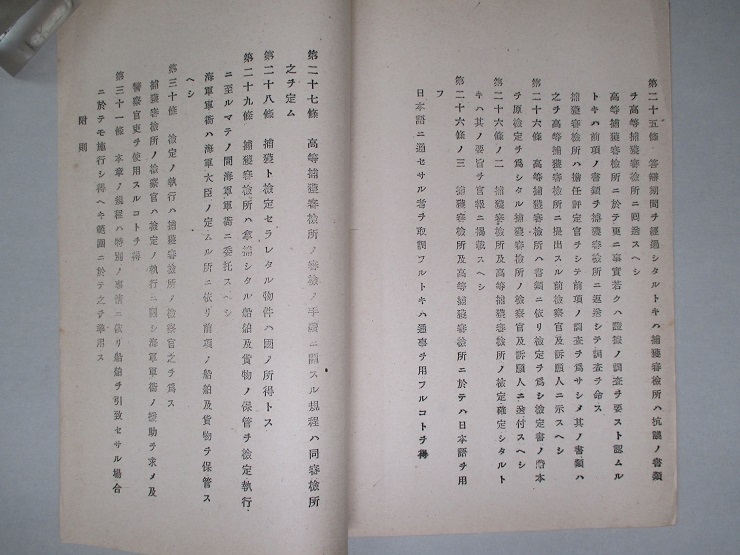 第二十五條　答辯期間ヲ經過シタルトキハ捕獲審檢所ハ抗議ノ書類
ヲ高等捕獲審檢所ニ囘送スヘシ
高等捕獲審檢所ニ於テ更ニ事實若クハ證據ノ調査ヲ要スト認ムル
トキハ前項ノ書類ヲ捕獲審檢所ニ返送シテ調査ヲ命ス
捕獲審檢所ハ擔任評定官ヲシテ前項ノ調査ヲ爲サシメ其ノ書類ハ
之ヲ高等捕獲審檢所ニ提出スル前檢察官及訴願人ニ示スヘシ
第二十六條　高等捕獲審檢所ハ書類ニ依リ檢定ヲ爲シ檢定書ノ謄本
ヲ原檢定ヲ爲シタル捕獲審檢所ノ檢察官及訴願人ニ送付スヘシ
第二十六條ノ二　捕獲審檢所及高等捕獲審檢所ノ檢定確定シタルト
キハ其ノ要旨ヲ官報ニ揭載スヘシ
第二十六條ノ三　捕獲審檢所及高等捕獲審檢所ニ於テハ日本語ヲ用
フ
日本語ニ通セサル者ヲ取調フルトキハ通事ヲ用フルコトヲ得
第二十七條　高等捕獲審檢所ノ審檢ノ手續ニ關スル規程ハ同審檢所
之ヲ定ム
第二十八條　捕獲ト檢定セラレタル物件ハ國ノ所得トス
第二十九條　捕獲審檢所ハ拿捕シタル船舶及貨物ノ保管ヲ檢定執行
ニ至ルマテノ間海軍軍衙ニ委托スヘシ
海軍軍衙ハ海軍大臣ノ定ムル所ニ依リ前項ノ船舶及貨物ヲ保管ス
ヘシ
第三十條　檢定ノ執行ハ捕獲審檢所ノ檢察官之ヲ爲ス
捕獲審檢所ノ檢察官ハ檢定ノ執行ニ關シ海軍軍衙ノ援助ヲ求メ及
警察官吏ヲ使用スルコトヲ得
第三十一條　本章ノ規程ハ特別ノ事情ニ依リ船舶ヲ引致セサル場合
ニ於テモ施行シ得ヘキ範圍ニ於テ之ヲ準用ス
附則